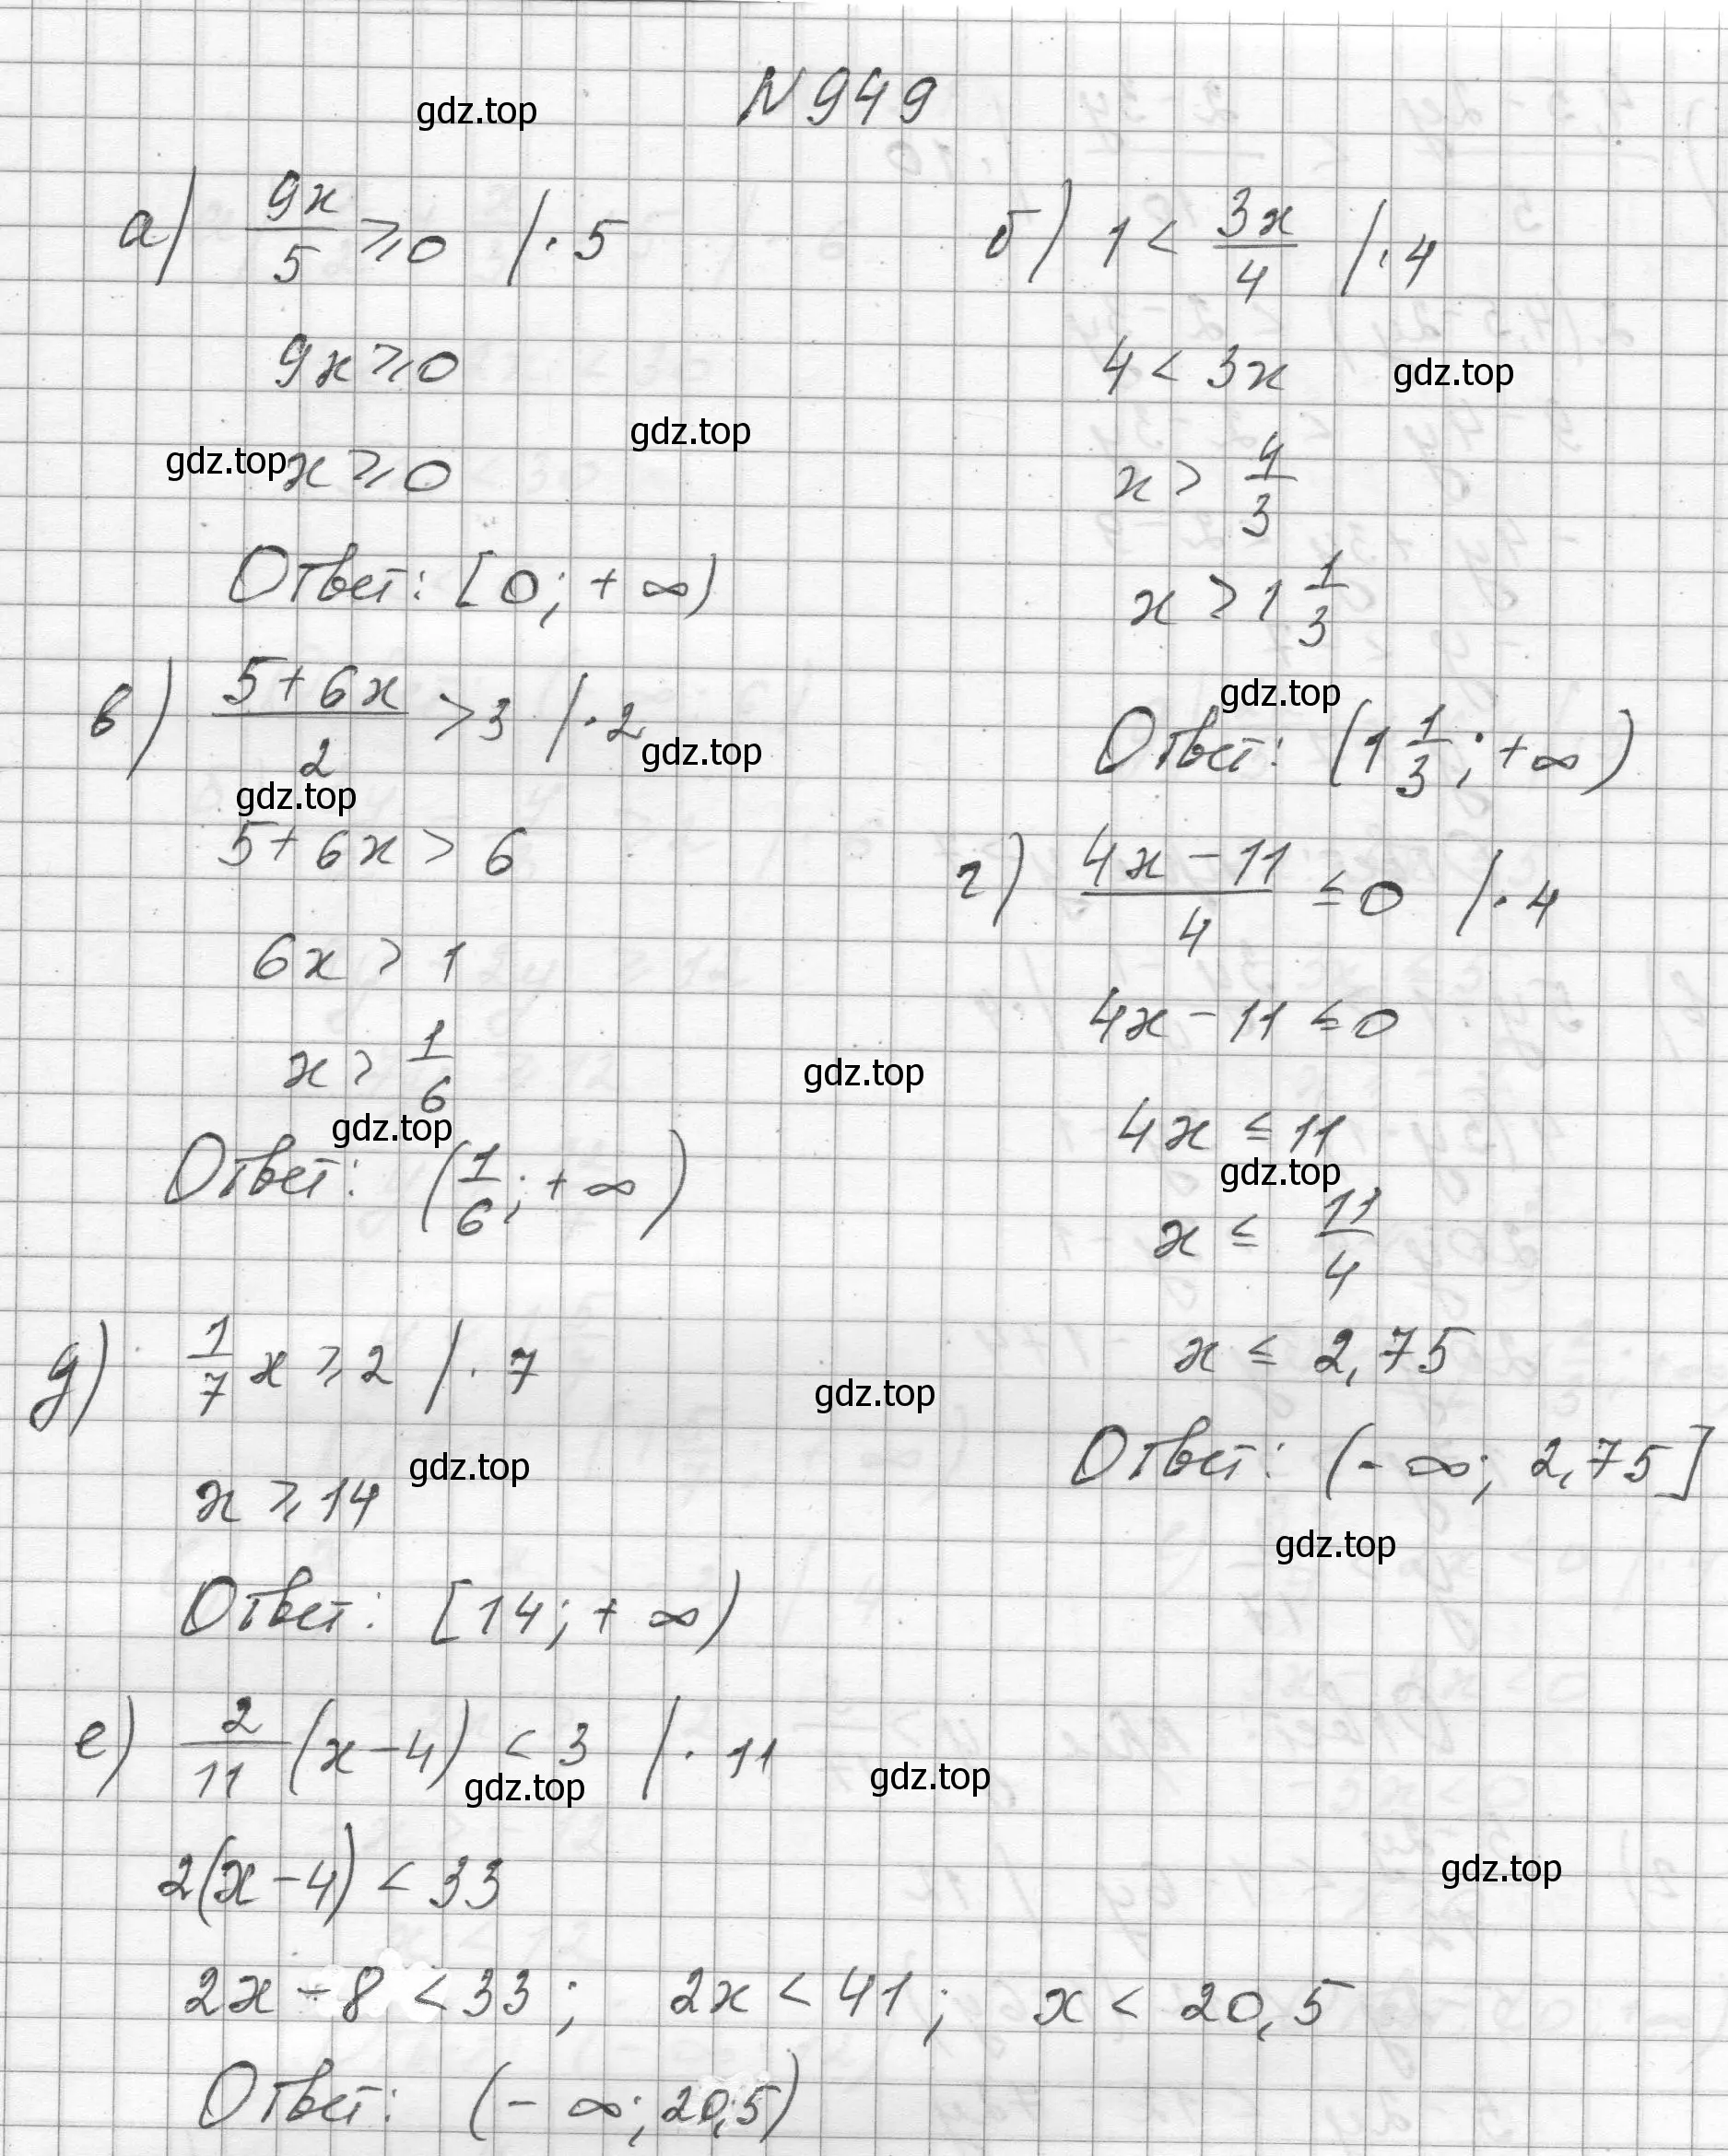 N 949
gdz.top
а) 9x/5 ⩾ 0 | · 5
9x ⩾ 0
gdz.top
gdz.top
x ⩾ 0
Ответ: [0; +∞)
б) 1 < 3x/4 | · 4
4 < 3x
gdz.top
x > 4/3
x > 1 1/3
gdz.top
Ответ: (1 1/3; +∞)
в) (5+6x)/2 > 3 | · 2
gdz.top
gdz.top
5+6x > 6
6x > 1
x > 1/6
gdz.top
gdz.top
Ответ: (1/6; +∞)
г) (4x-11)/4 ≤ 0 | · 4
4x-11 ≤ 0
4x ≤ 11
gdz.top
x ≤ 11/4
x ≤ 2,75
Ответ: (-∞; 2,75]
gdz.top
д) 1/7 x ⩾ 2 | · 7
gdz.top
gdz.top
x ⩾ 14
Ответ: [14; +∞)
е) 2/11 (x-4) < 3 | · 11
gdz.top
gdz.top
2(x-4) < 33
gdz.top
2x-8 < 33; 2x < 41; x < 20,5
Ответ: (-∞; 20,5)